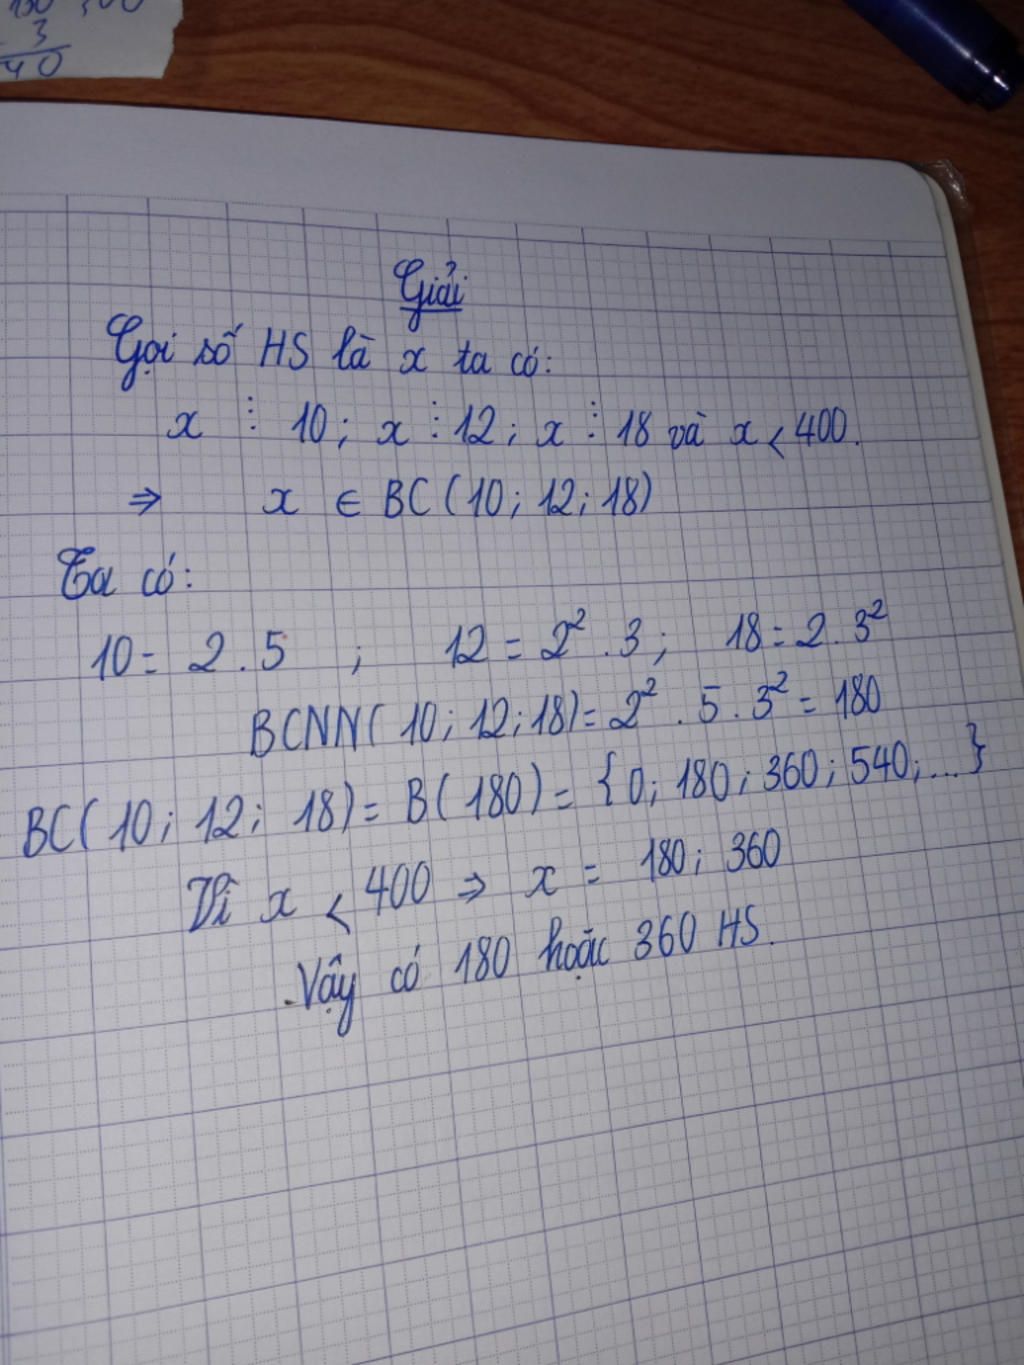 3
40
Giải
Gọi số HS là x ta có:
x ⋮ 10; x ⋮ 12; x ⋮ 18 và x < 400.
⇒ x ∈ BC(10; 12; 18)
Ta có:
10 = 2 . 5 ; 12 = 2² . 3; 18 = 2 . 3²
BCNN(10; 12; 18) = 2² . 5 . 3² = 180
BC(10; 12; 18) = B(180) = {0; 180; 360; 540; ...}
Vì x < 400 ⇒ x = 180; 360
Vậy có 180 hoặc 360 HS.